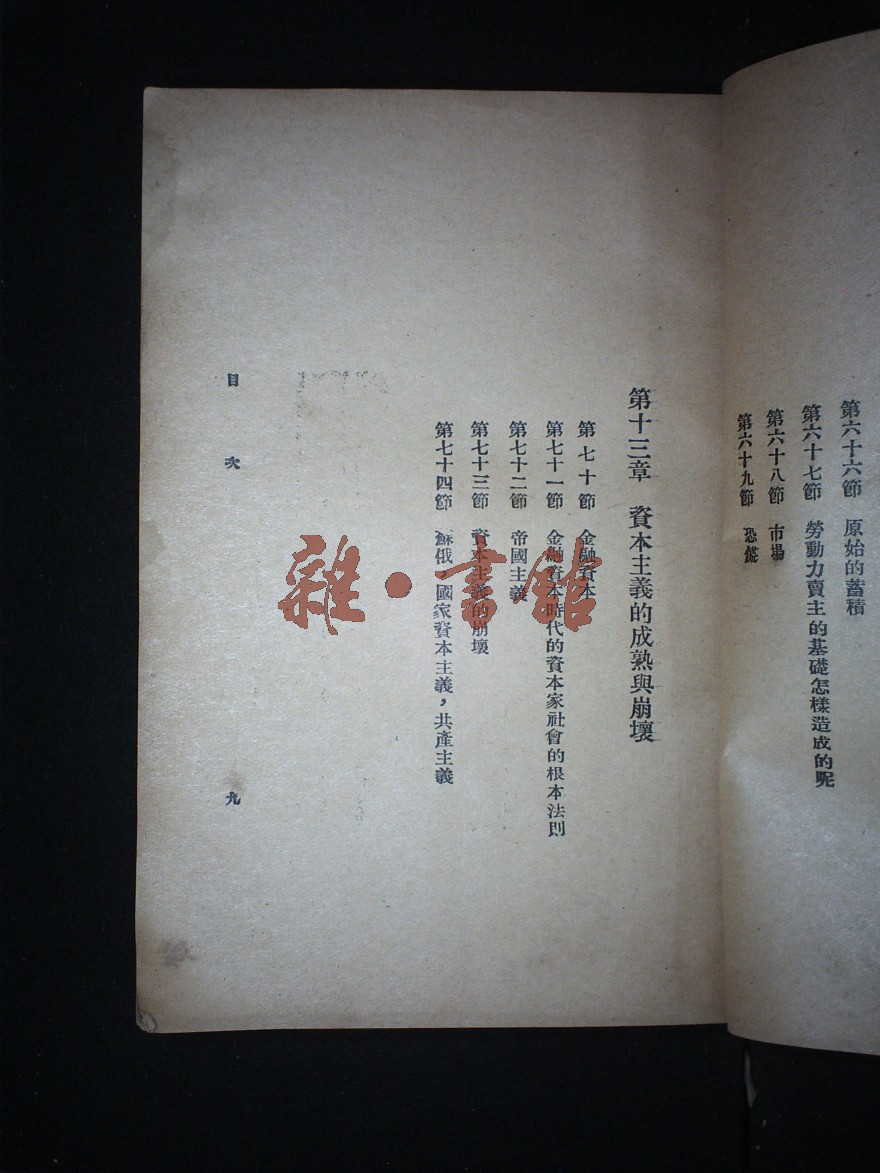 第六十六節　原始的蓄積
第六十七節　勞動力賣主的基礎怎樣造成的呢
第六十八節　市場
第六十九節　恐慌
第十三章　資本主義的成熟與崩壞
第七十節　金融資本
第七十一節　金融資本時代的資本家社會的根本法則
第七十二節　帝國主義
第七十三節　資本主義的崩壞
第七十四節　蘇俄，國家資本主義，共產主義
目次
九
雜·書館